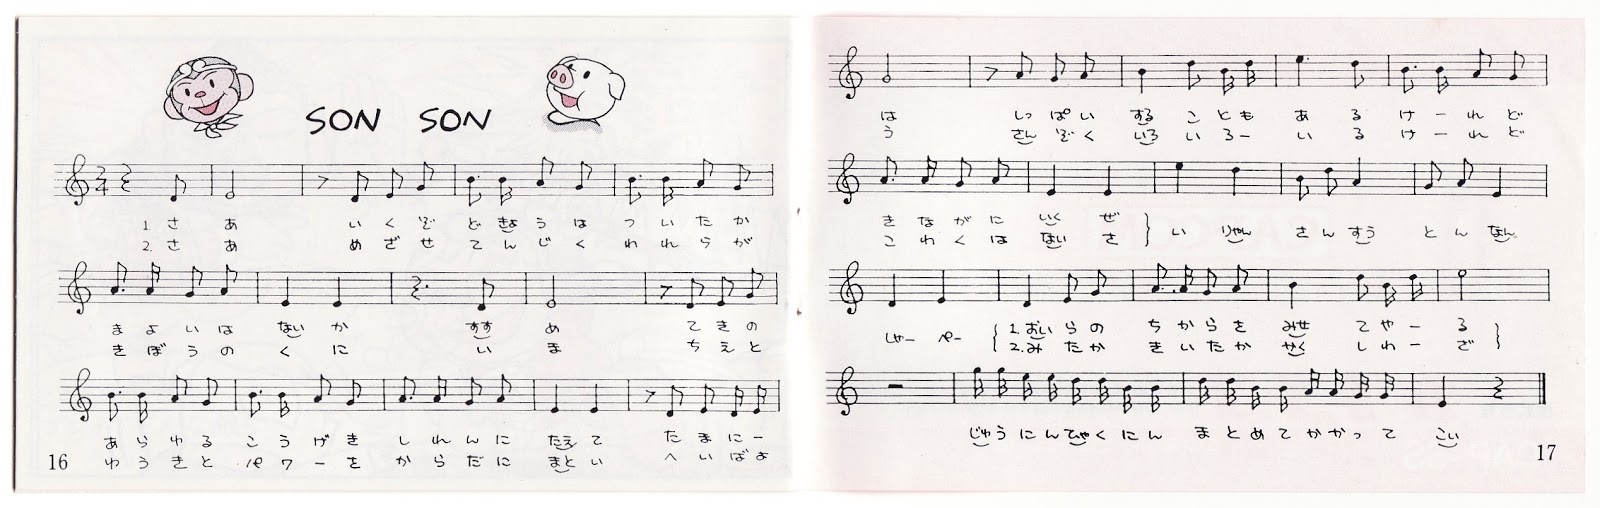 SON SON
2 4
1. さ あ い く ぞ ど きょ う は つ い た か
2. さ あ め ざ せ て ん じ く わ れ ら が
ま よ い は ない か すす め て き の
き ぼ う の く に い ま ち え と
あ ら ゆ る こ う げ き し れ ん に たえ て た ま に ー
ゆ う き と パ ワ ー を か ら だ に まと い へ い ば よ
16
は しっ ぱ い する こ と も あ る け ー れ ど
う さん ぞ く いろ い ろ ー い る け ー れ ど
き な が に いく ぜ } い りゃん さ ん すう と ん なん。
こ わ く は ない さ
しゃー ペー { 1. おい ら の ち か ら を みせ て や ー る }
2. み た か き い た か やく し わ ー ざ
じゅう に ん ひゃく に ん ま と め て か か っ て こい
17